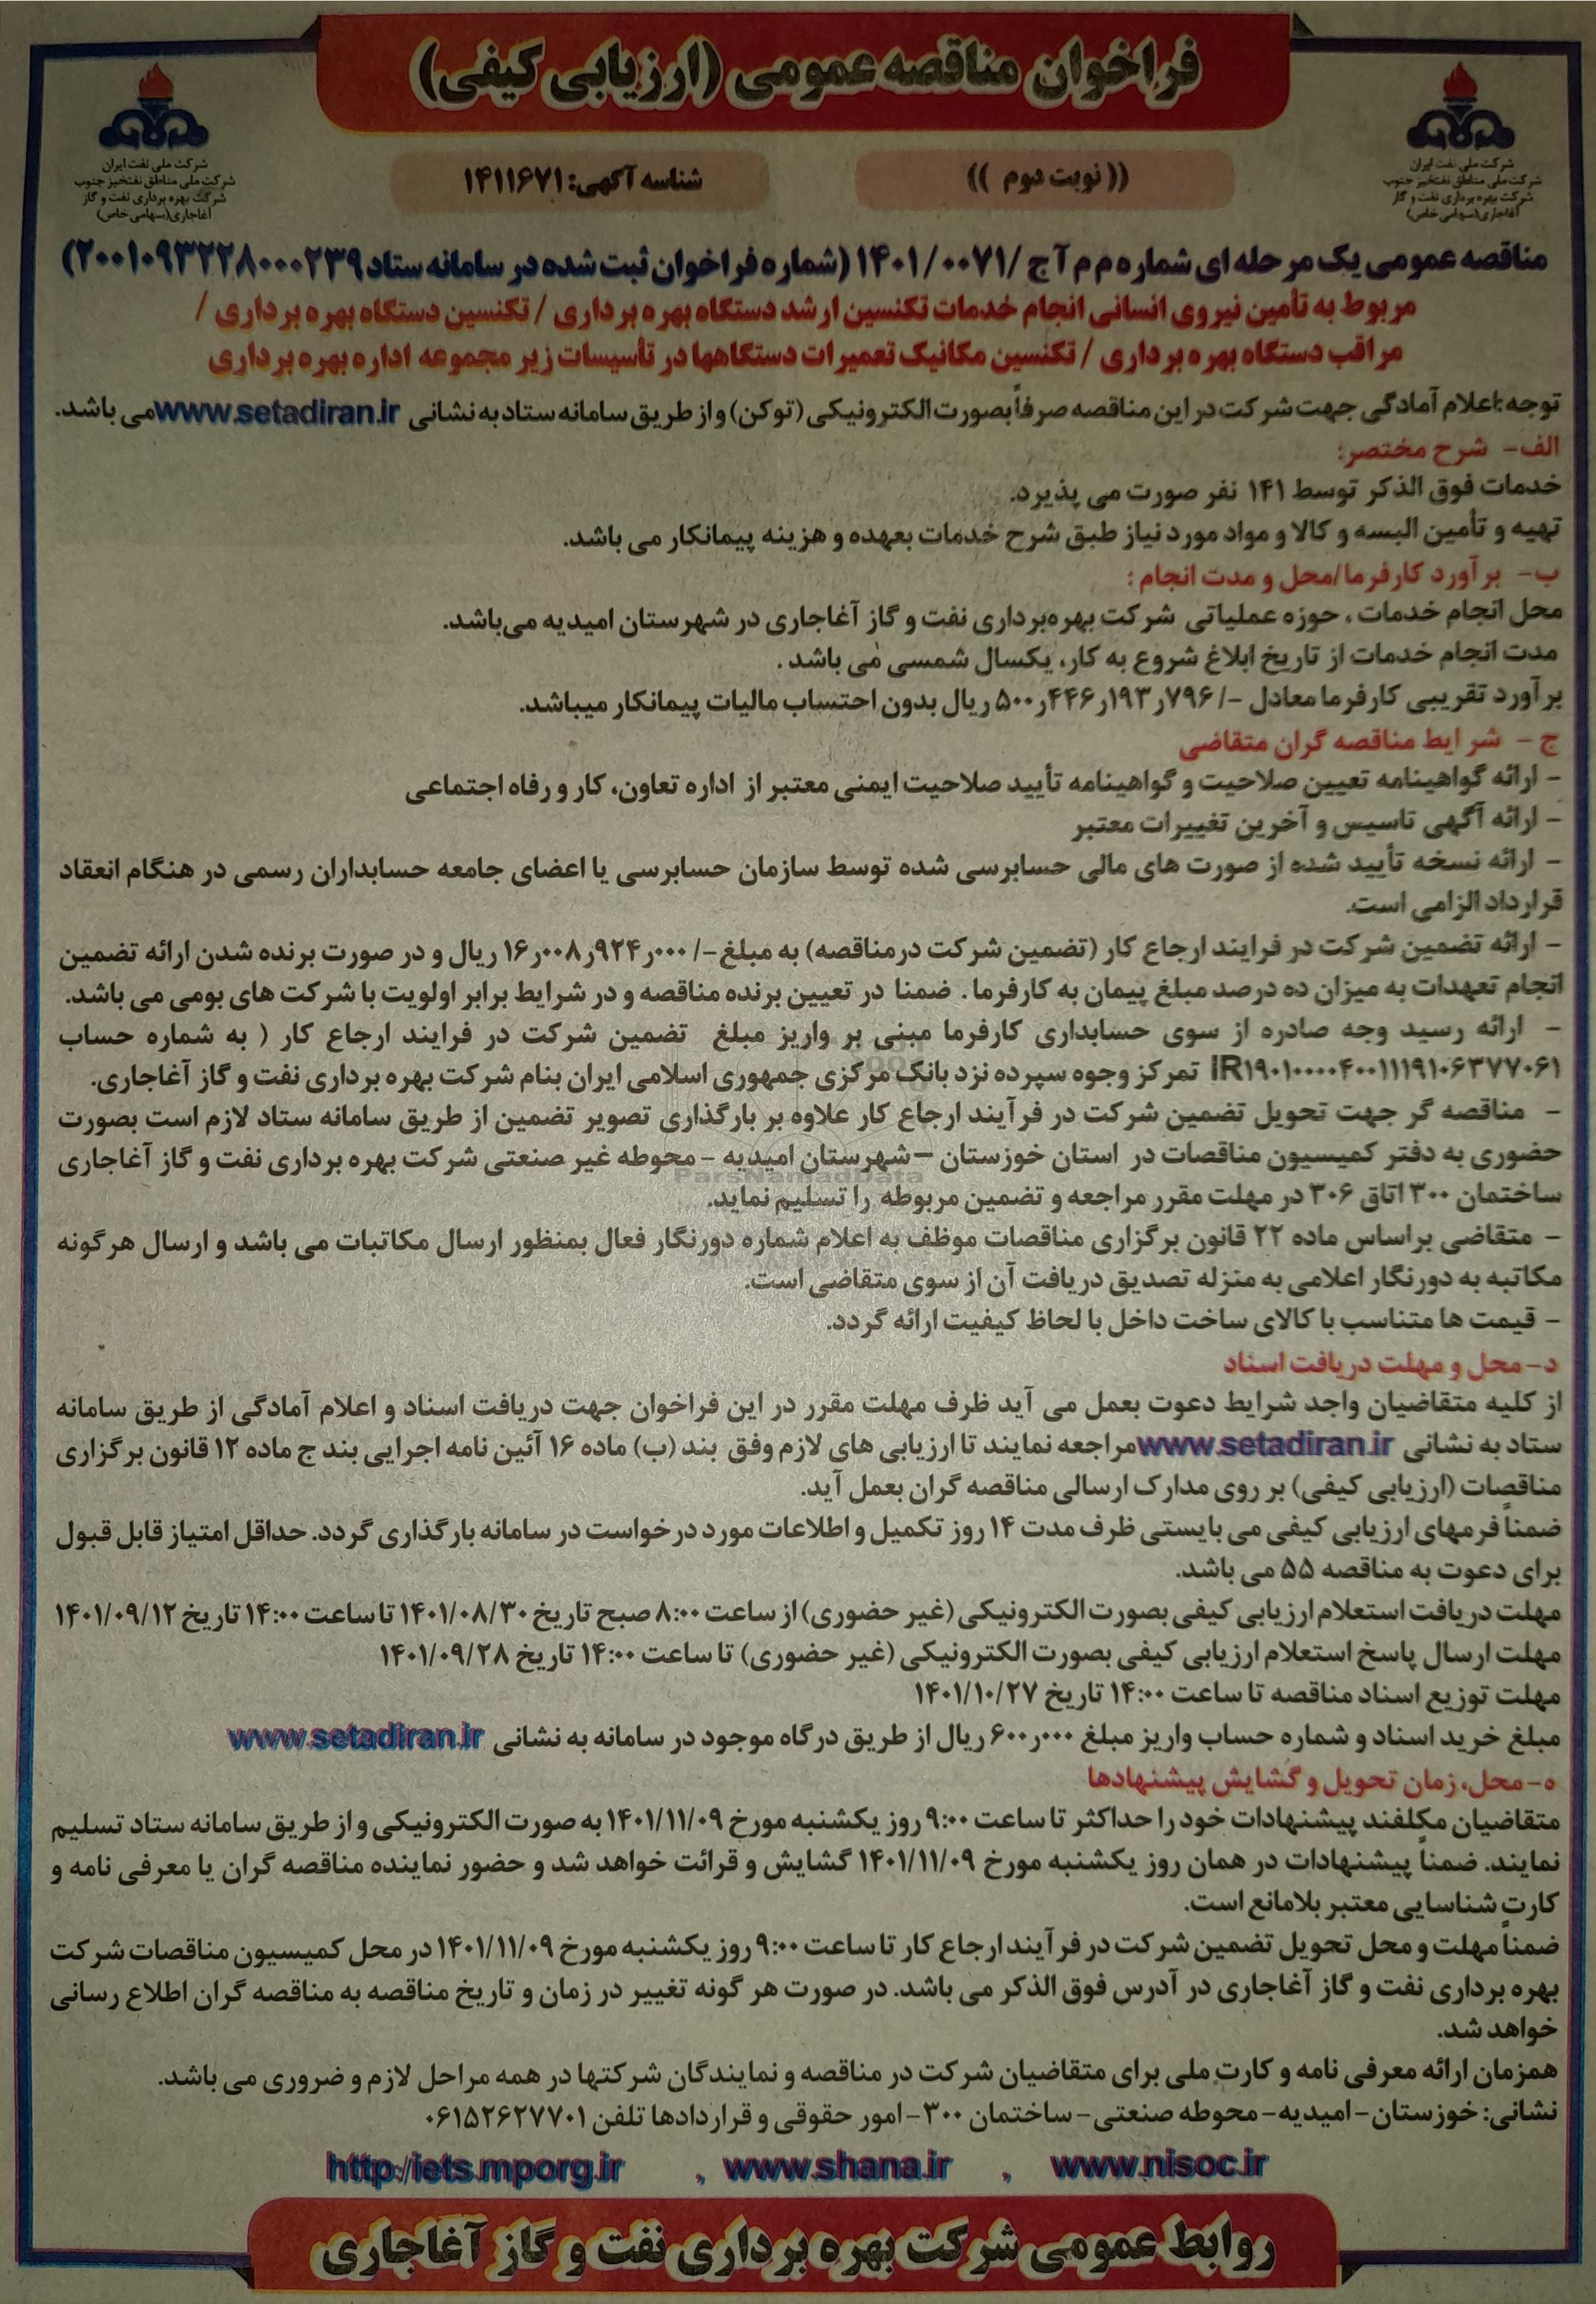 فراخوان مناقصه عمومی (ارزیابی کیفی)
شرکت ملی نفت ایران
شرکت ملی مناطق نفتخیز جنوب
شرکت بهره برداری نفت و گاز
آغاجاری(سهامی خاص)
(( نوبت دوم ))
شناسه آگهی: ۱۴۱۱۶۷۱
شرکت ملی نفت ایران
شرکت ملی مناطق نفتخیز جنوب
شرکت بهره برداری نفت و گاز
آغاجاری(سهامی خاص)
مناقصه عمومی یک مرحله ای شماره م م آ ج /۱۴۰۱/۰۰۷۱ (شماره فراخوان ثبت شده در سامانه ستاد ۲۰۰۱۰۹۳۲۲۸۰۰۰۲۳۹)
مربوط به تأمین نیروی انسانی انجام خدمات تکنسین ارشد دستگاه بهره برداری / تکنسین دستگاه بهره برداری /
مراقب دستگاه بهره برداری / تکنسین مکانیک تعمیرات دستگاهها در تأسیسات زیر مجموعه اداره بهره برداری
توجه:اعلام آمادگی جهت شرکت در این مناقصه صرفاً بصورت الکترونیکی (توکن) و از طریق سامانه ستاد به نشانی www.setadiran.ir می باشد.
الف- شرح مختصر:
خدمات فوق الذکر توسط ۱۴۱ نفر صورت می پذیرد.
تهیه و تأمین البسه و کالا و مواد مورد نیاز طبق شرح خدمات بعهده و هزینه پیمانکار می باشد.
ب- برآورد کارفرما/محل و مدت انجام :
محل انجام خدمات ، حوزه عملیاتی شرکت بهره‌برداری نفت و گاز آغاجاری در شهرستان امیدیه می‌باشد.
مدت انجام خدمات از تاریخ ابلاغ شروع به کار، یکسال شمسی می باشد .
برآورد تقریبی کارفرما معادل -/۵۰۰ر۴۴۶ر۱۹۳ر۷۹۶ ریال بدون احتساب مالیات پیمانکار میباشد.
ج - شرایط مناقصه گران متقاضی
- ارائه گواهینامه تعیین صلاحیت و گواهینامه تأیید صلاحیت ایمنی معتبر از اداره تعاون، کار و رفاه اجتماعی
- ارائه آگهی تاسیس و آخرین تغییرات معتبر
- ارائه نسخه تأیید شده از صورت های مالی حسابرسی شده توسط سازمان حسابرسی یا اعضای جامعه حسابداران رسمی در هنگام انعقاد
قرارداد الزامی است.
- ارائه تضمین شرکت در فرایند ارجاع کار (تضمین شرکت درمناقصه) به مبلغ-/۰۰۰ر۹۲۴ر۰۰۸ر۱۶ ریال و در صورت برنده شدن ارائه تضمین
انجام تعهدات به میزان ده درصد مبلغ پیمان به کارفرما . ضمنا در تعیین برنده مناقصه و در شرایط برابر اولویت با شرکت های بومی می باشد.
- ارائه رسید وجه صادره از سوی حسابداری کارفرما مبنی بر واریز مبلغ تضمین شرکت در فرایند ارجاع کار ( به شماره حساب
IR۱۹۰۱۰۰۰۰۴۰۰۱۱۱۹۱۰۶۳۷۷۰۶۱ تمرکز وجوه سپرده نزد بانک مرکزی جمهوری اسلامی ایران بنام شرکت بهره برداری نفت و گاز آغاجاری.
- مناقصه گر جهت تحویل تضمین شرکت در فرآیند ارجاع کار علاوه بر بارگذاری تصویر تضمین از طریق سامانه ستاد لازم است بصورت
حضوری به دفتر کمیسیون مناقصات در استان خوزستان –شهرستان امیدیه -محوطه غیر صنعتی شرکت بهره برداری نفت و گاز آغاجاری
ParsNamadData
ساختمان ۳۰۰ اتاق ۳۰۶ در مهلت مقرر مراجعه و تضمین مربوطه را تسلیم نماید.
- متقاضی براساس ماده ۲۲ قانون برگزاری مناقصات موظف به اعلام شماره دورنگار فعال بمنظور ارسال مکاتبات می باشد و ارسال هرگونه
مکاتبه به دورنگار اعلامی به منزله تصدیق دریافت آن از سوی متقاضی است.
- قیمت ها متناسب با کالای ساخت داخل با لحاظ کیفیت ارائه گردد.
د-محل و مهلت دریافت اسناد
از کلیه متقاضیان واجد شرایط دعوت بعمل می آید ظرف مهلت مقرر در این فراخوان جهت دریافت اسناد و اعلام آمادگی از طریق سامانه
ستاد به نشانی www.setadiran.ir مراجعه نمایند تا ارزیابی های لازم وفق بند (ب) ماده ۱۶ آئین نامه اجرایی بند ج ماده ۱۲ قانون برگزاری
مناقصات (ارزیابی کیفی) بر روی مدارک ارسالی مناقصه گران بعمل آید.
ضمناً فرمهای ارزیابی کیفی می بایستی ظرف مدت ۱۴ روز تکمیل و اطلاعات مورد درخواست در سامانه بارگذاری گردد. حداقل امتیاز قابل قبول
برای دعوت به مناقصه ۵۵ می باشد.
مهلت دریافت استعلام ارزیابی کیفی بصورت الکترونیکی (غیر حضوری) از ساعت ۸:۰۰ صبح تاریخ ۱۴۰۱/۰۸/۳۰ تا ساعت ۱۴:۰۰ تاریخ ۱۴۰۱/۰۹/۱۲
مهلت ارسال پاسخ استعلام ارزیابی کیفی بصورت الکترونیکی (غیر حضوری) تا ساعت ۱۴:۰۰ تاریخ ۱۴۰۱/۰۹/۲۸
مهلت توزیع اسناد مناقصه تا ساعت ۱۴:۰۰ تاریخ ۱۴۰۱/۱۰/۲۷
مبلغ خرید اسناد و شماره حساب واریز مبلغ ۰۰۰ر۶۰۰ ریال از طریق درگاه موجود در سامانه به نشانی www.setadiran.ir
ه-محل، زمان تحویل و گشایش پیشنهادها
متقاضیان مکلفند پیشنهادات خود را حداکثر تا ساعت ۹:۰۰ روز یکشنبه مورخ ۱۴۰۱/۱۱/۰۹ به صورت الکترونیکی و از طریق سامانه ستاد تسلیم
نمایند. ضمناً پیشنهادات در همان روز یکشنبه مورخ ۱۴۰۱/۱۱/۰۹ گشایش و قرائت خواهد شد و حضور نماینده مناقصه گران یا معرفی نامه و
کارت شناسایی معتبر بلامانع است.
ضمناً مهلت و محل تحویل تضمین شرکت در فرآیند ارجاع کار تا ساعت ۹:۰۰ روز یکشنبه مورخ ۱۴۰۱/۱۱/۰۹ در محل کمیسیون مناقصات شرکت
بهره برداری نفت و گاز آغاجاری در آدرس فوق الذکر می باشد. در صورت هر گونه تغییر در زمان و تاریخ مناقصه به مناقصه گران اطلاع رسانی
خواهد شد.
همزمان ارائه معرفی نامه و کارت ملی برای متقاضیان شرکت در مناقصه و نمایندگان شرکتها در همه مراحل لازم و ضروری می باشد.
نشانی: خوزستان-امیدیه-محوطه صنعتی-ساختمان ۳۰۰-امور حقوقی و قراردادها تلفن ۰۶۱۵۲۶۲۷۷۰۱
www.nisoc.ir , www.shana.ir , http:/iets.mporg.ir
روابط عمومی شرکت بهره برداری نفت و گاز آغاجاری